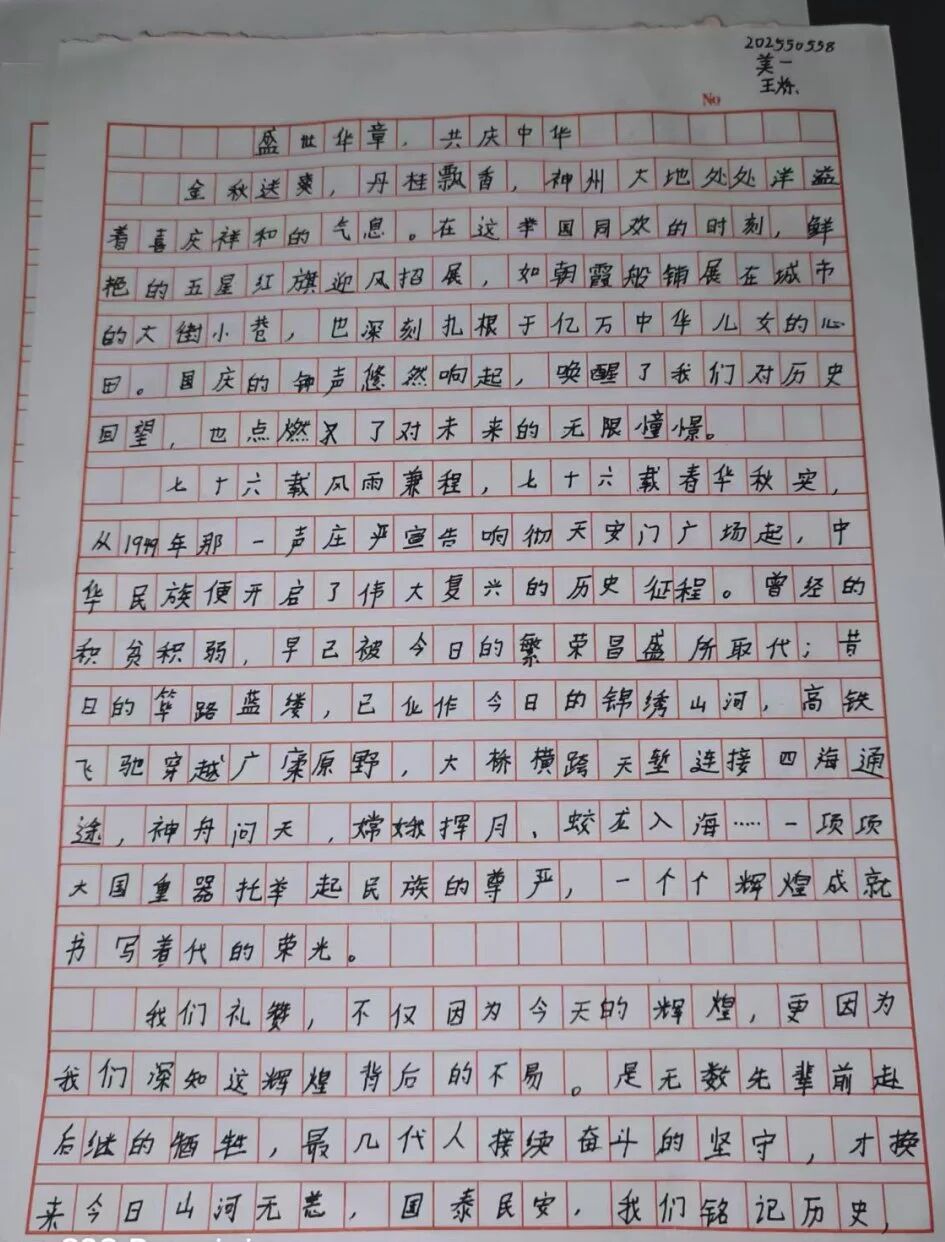 202550558
美一
王栎
No
盛世华章，共庆中华
金秋送爽，丹桂飘香，神州大地处处洋溢
着喜庆祥和的气息。在这举国同欢的时刻，鲜
艳的五星红旗迎风招展，如朝霞般铺展在城市
的大街小巷，也深刻扎根于亿万中华儿女的心
田。国庆的钟声悠然响起，唤醒了我们对历史
回望，也点燃了对未来的无限憧憬。
七十六载风雨兼程，七十六载春华秋实，
从1949年那一声庄严宣告响彻天安门广场起，中
华民族便开启了伟大复兴的历史征程。曾经的
积贫积弱，早已被今日的繁荣昌盛所取代；昔
日的筚路蓝缕，已化作今日的锦绣山河，高铁
飞驰穿越广袤原野，大桥横跨天堑连接四海通
途，神舟问天，嫦娥揽月、蛟龙入海……一项项
大国重器托举起民族的尊严，一个个辉煌成就
书写着代的荣光。
我们礼赞，不仅因为今天的辉煌，更因为
我们深知这辉煌背后的不易。是无数先辈前赴
后继的牺牲，最几代人接续奋斗的坚守，才换
来今日山河无恙，国泰民安，我们铭记历史，